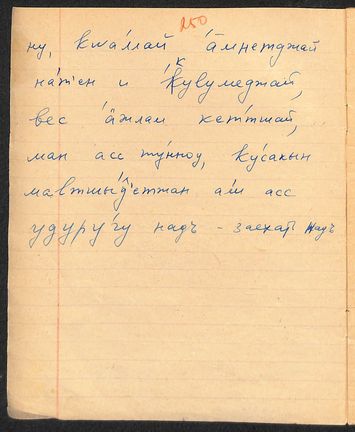 250
ну, ква́ллай а́мнетджай
на́тен и Ќувумеджай,
вес а́жлам кет́тшай,
ман асс ту́нноу, ку́сакын
мавтшы́д'еттан а́ш асс
удуру́гу надъ - заехать надъ